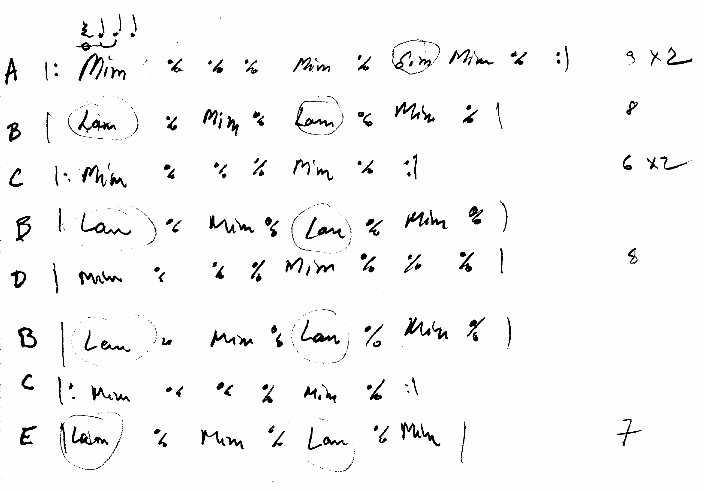 A |: Mim % % % Mim % Sim Mim % :| 9 x2
B | Lam % Mim % Lam % Mim % | 8
C |: Mim % % % Mim % :| 6 x2
B | Lam % Mim % Lam % Mim % |
D | Mim % % % Mim % % % | 8
B | Lam % Mim % Lam % Mim % |
C |: Mim % % % Mim % :|
E | Lam % Mim % Lam % Mim | 7